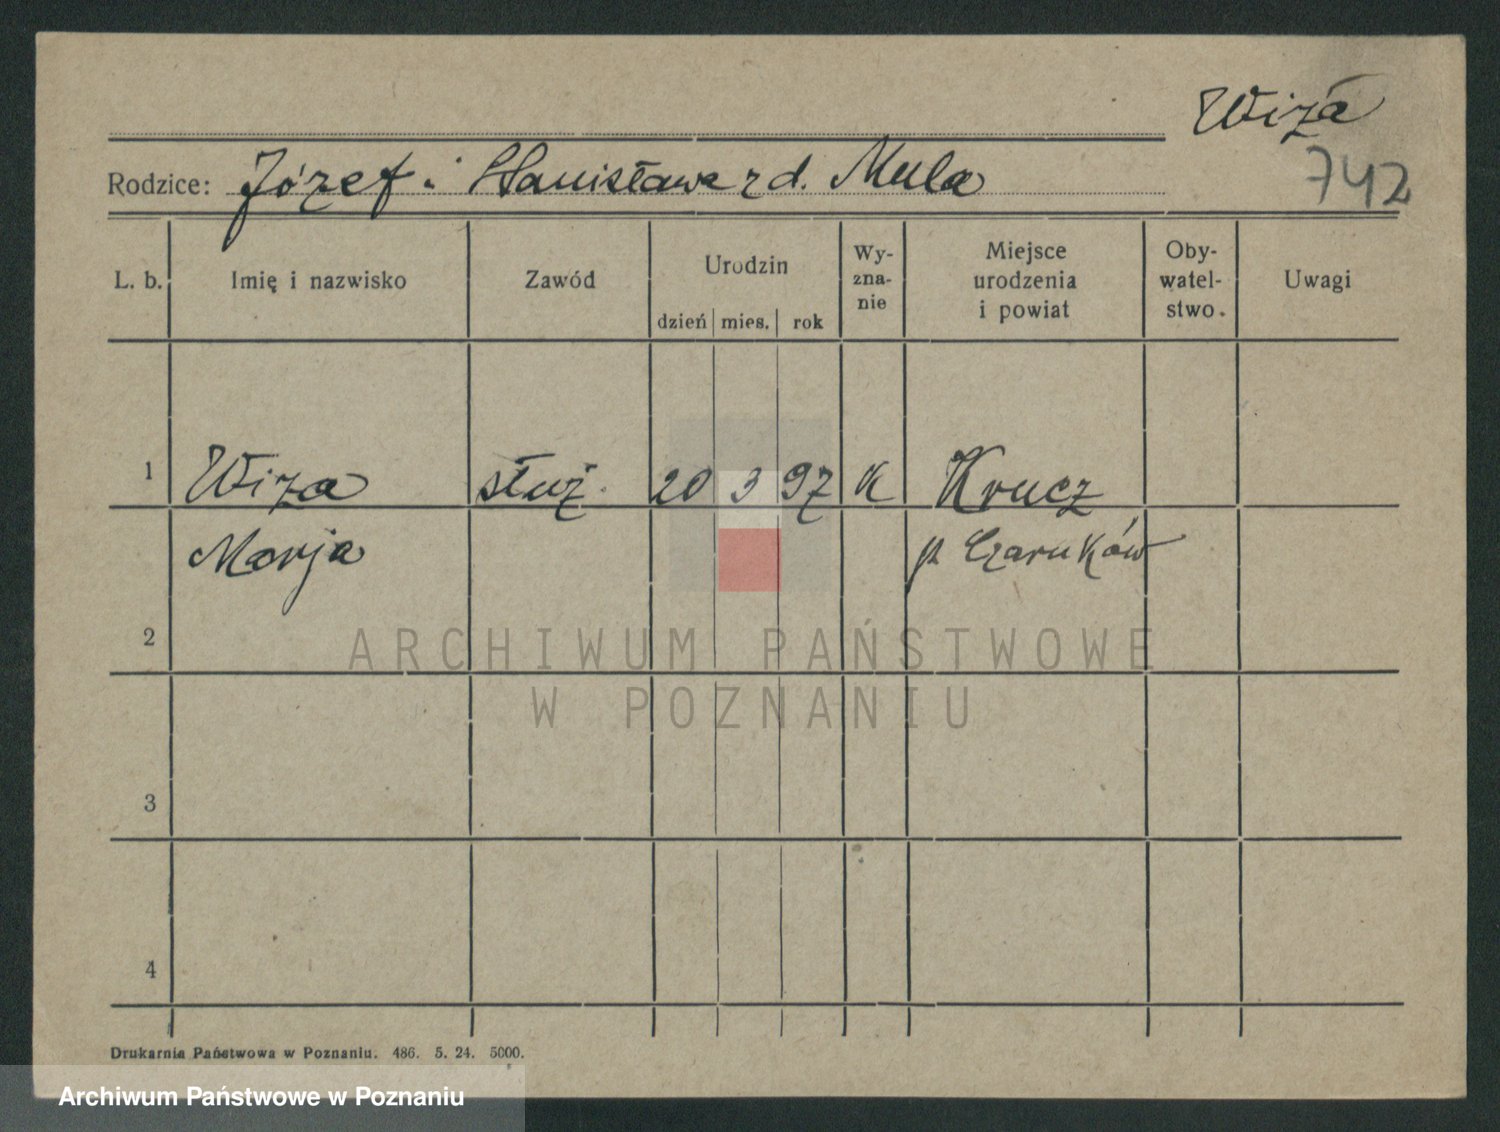 Wiza
742
Rodzice: Józef i Stanisława z d. Mula
L. b. Imię i nazwisko Zawód Urodzin dzień mies. rok Wy-zna-nie Miejsce urodzenia i powiat Oby-watel-stwo. Uwagi
1 Wiza służ. 20 3 97 K Krucz
Marja p. Czarnków
2
ARCHIWUM PAŃSTWOWE
W POZNANIU
3
4
Drukarnia Państwowa w Poznaniu. 486. 5. 24. 5000.
Archiwum Państwowe w Poznaniu